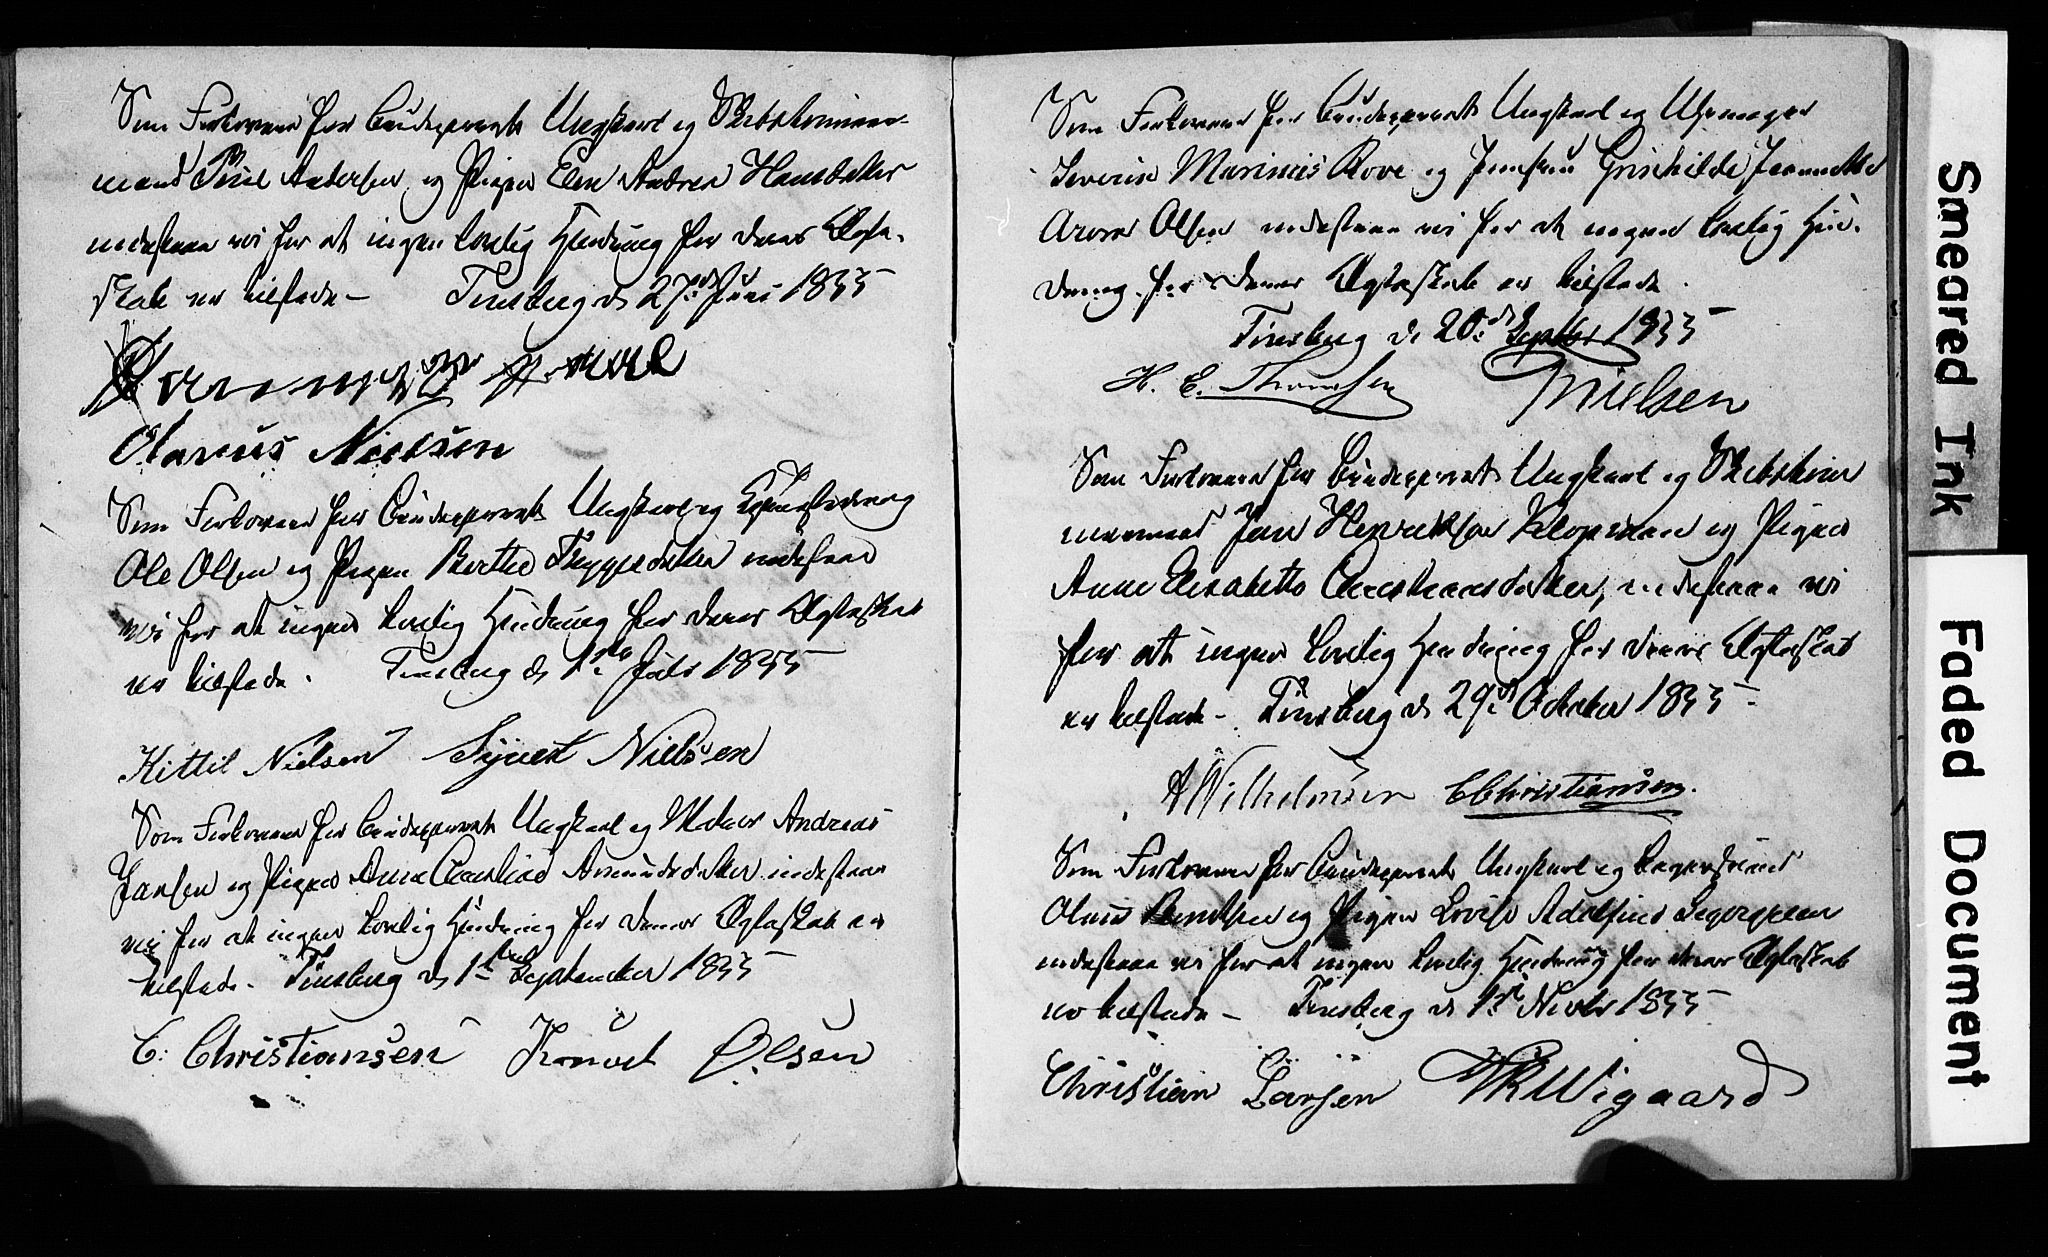 Som Forlovere for Brudeparret Ungkarl og Skibstømmer-
mand Poul Andersen og Pigen Elen Andrea Hansdatter
indestaae vi for at ingen lovlig Hindring for deres Ægte-
skab er tilstede – Tönsberg d 27de Juni 1855
Olavus Nielsen
Som Forlovere for Brudeparret Ungkarl og
Ole Olsen og Pigen Berthe Tryggesdatter indestaae
vi for at ingen lovlig Hindring for deres Ægteskab
er tilstede. Tönsberg d 1ste Juli 1855
Kittil Nielsen Syvert Nielsen
Som Forlovere for Brudeparret Ungkarl og Matros Andreas
Jansen og Pigen Anne Amundsdatter indestaae
vi for at ingen lovlig Hindring for deres Ægteskab er
tilstede. Tönsberg d 1ste September 1855
C: Christiansen Knut Olsen
Som Forlovere for Brudeparret Ungkarl og Uhrmager
Severin Marinius Rove og Jomfru Grischilde Jeanette
Olsen indestaae vi for at ingen lovlig Hin-
dring for deres Ægteskab er tilstede.
Tönsberg d. 20de Septbr 1855
H. E. Thomesen Nielsen
Som Forlovere for Brudeparret Ungkarl og Skibstöm
mermand Jan Henriksen Klopmann og Pigen
Anne Elisabeth Christensdatter, indestaae vi
for at ingen lovlig Hindring for deres Ægteskab
er tilstede – Tönsberg d 29de October 1855 –
A Wilhelmsen C Christiansen.
Som Forlovere for Brudeparret Ungkarl og Bagersvend
Olaus Berntsen og Pigen Lovise Adolfine Segergreen
indestaae vi for at ingen lovlig Hindring for deres Ægteskab
er tilstede – Tönsberg d 1ste Novbr 1855
Christian Larsen Wigaard
Smeared Ink
Faded Document